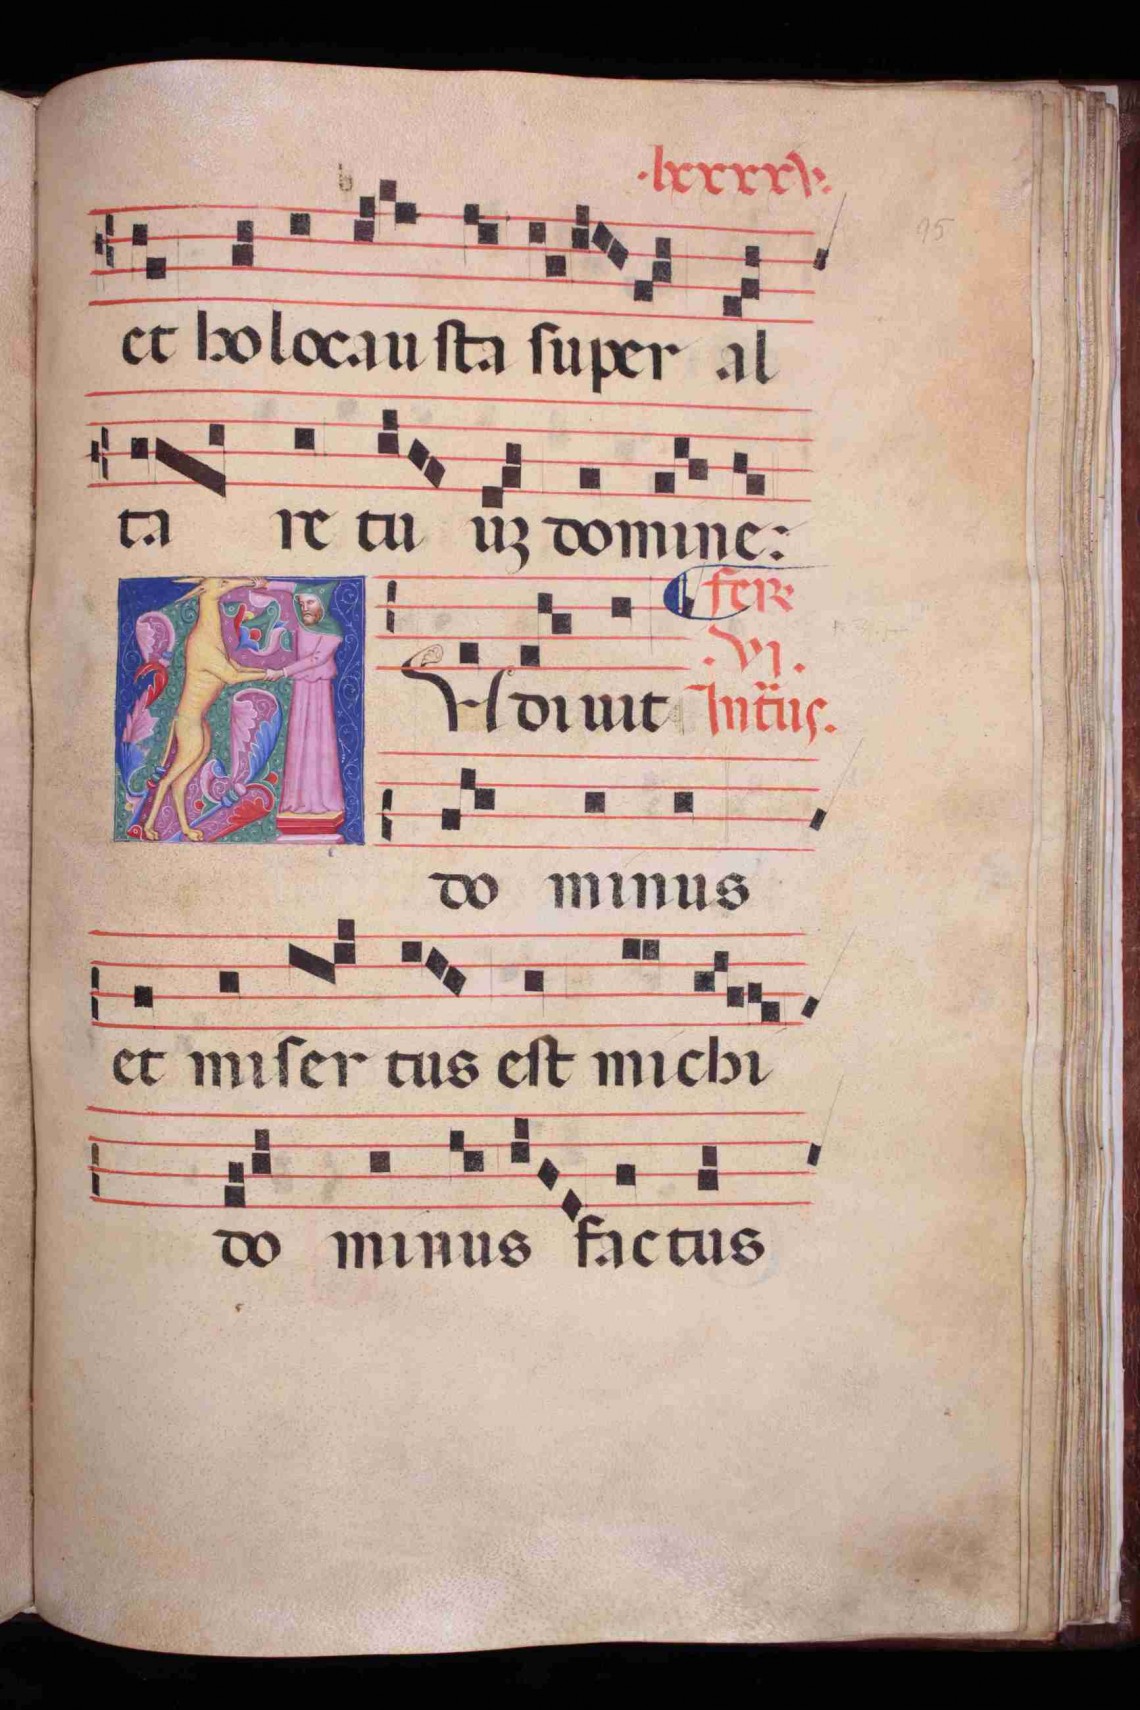 ·lxxxxv·
95
b
et holocausta super al
ta re tu uʒ domine:
fer
·VI·
Udivit Intus.
do minus
et misertus est michi
do minus factus